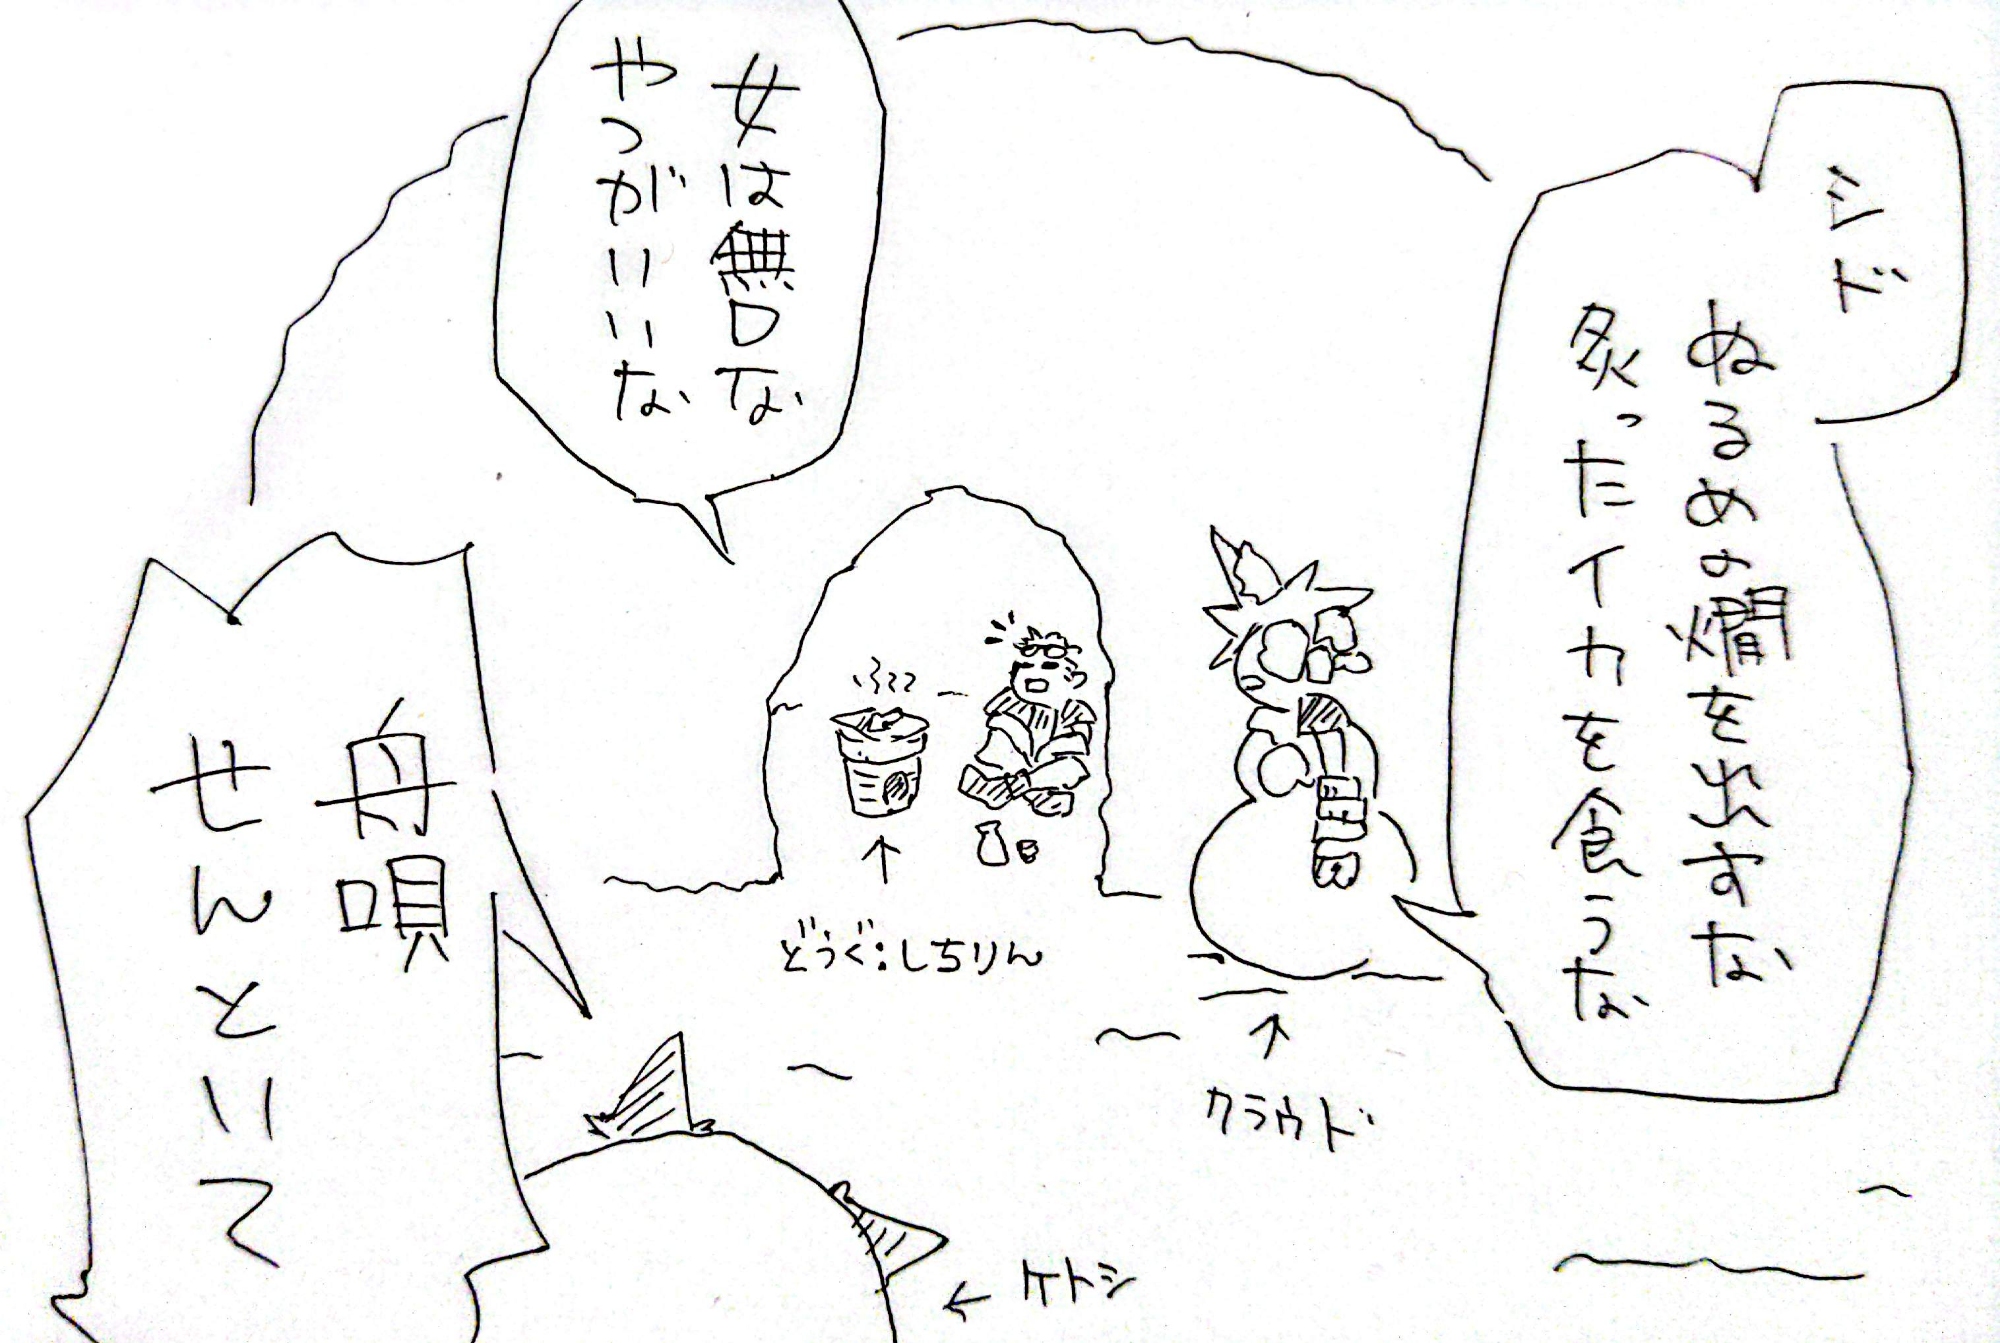 シド
ぬるめの燗を出すな
炙ったイカを食うな
女は無口な
やつがいいな
舟唄
せんといて
どうぐ:しちりん
クラウド
ケトシ